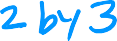 2 by 3